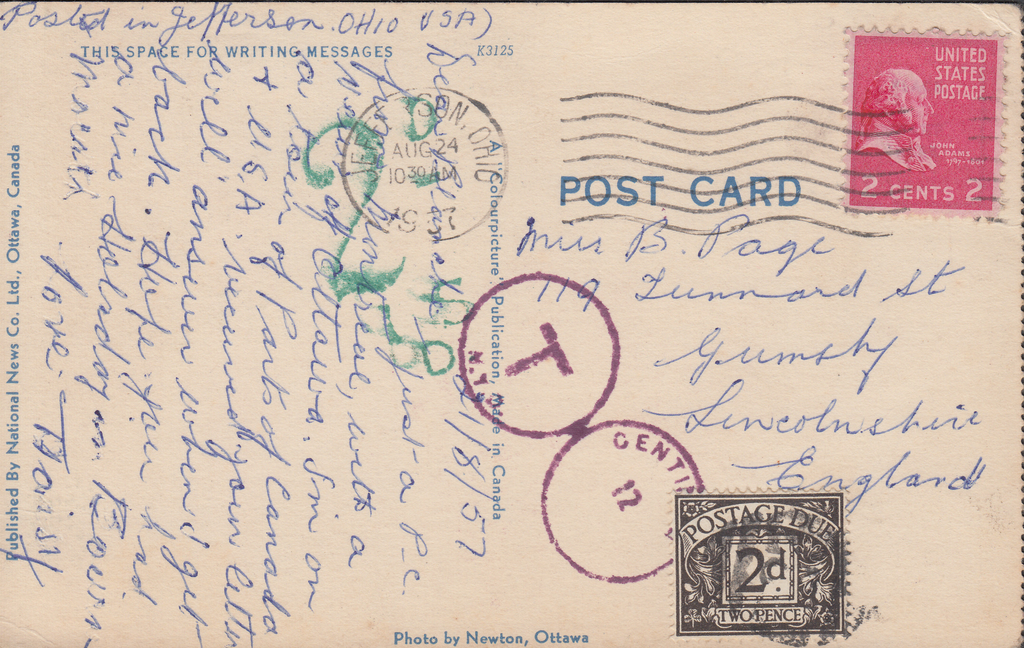 Posted in Jefferson. OHIO USA)
THIS SPACE FOR WRITING MESSAGES
K3125
Dear Blanche, 21/8/57
Just a P.C.
from Montreal, with a
view of Ottawa. I'm on
a tour of Parts of Canada
& USA. received your letter
will answer when I get
back. Hope you had
a nice Holiday in
Love
Doris
Published By National News Co. Ltd., Ottawa, Canada
A 'Colourpicture' Publication, Made in Canada
Photo by Newton, Ottawa
JEFFERSON, OHIO
AUG 24
10 30 AM
1957
UNITED
STATES
POSTAGE
JOHN
ADAMS
1797-1801
2 CENTS 2
POST CARD
Miss B. Page
119 Tunnard St
Grimsby
Lincolnshire
England
T
N.Y.
CENTI
12
POSTAGE DUE
2d
TWO PENCE